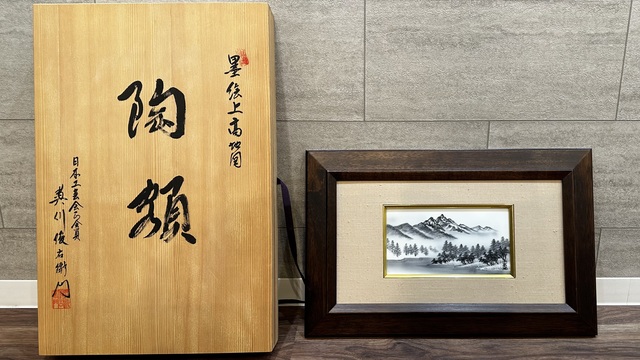 墨絵上高地図
陶額
日本工芸会正会員
奥川俊右衛門